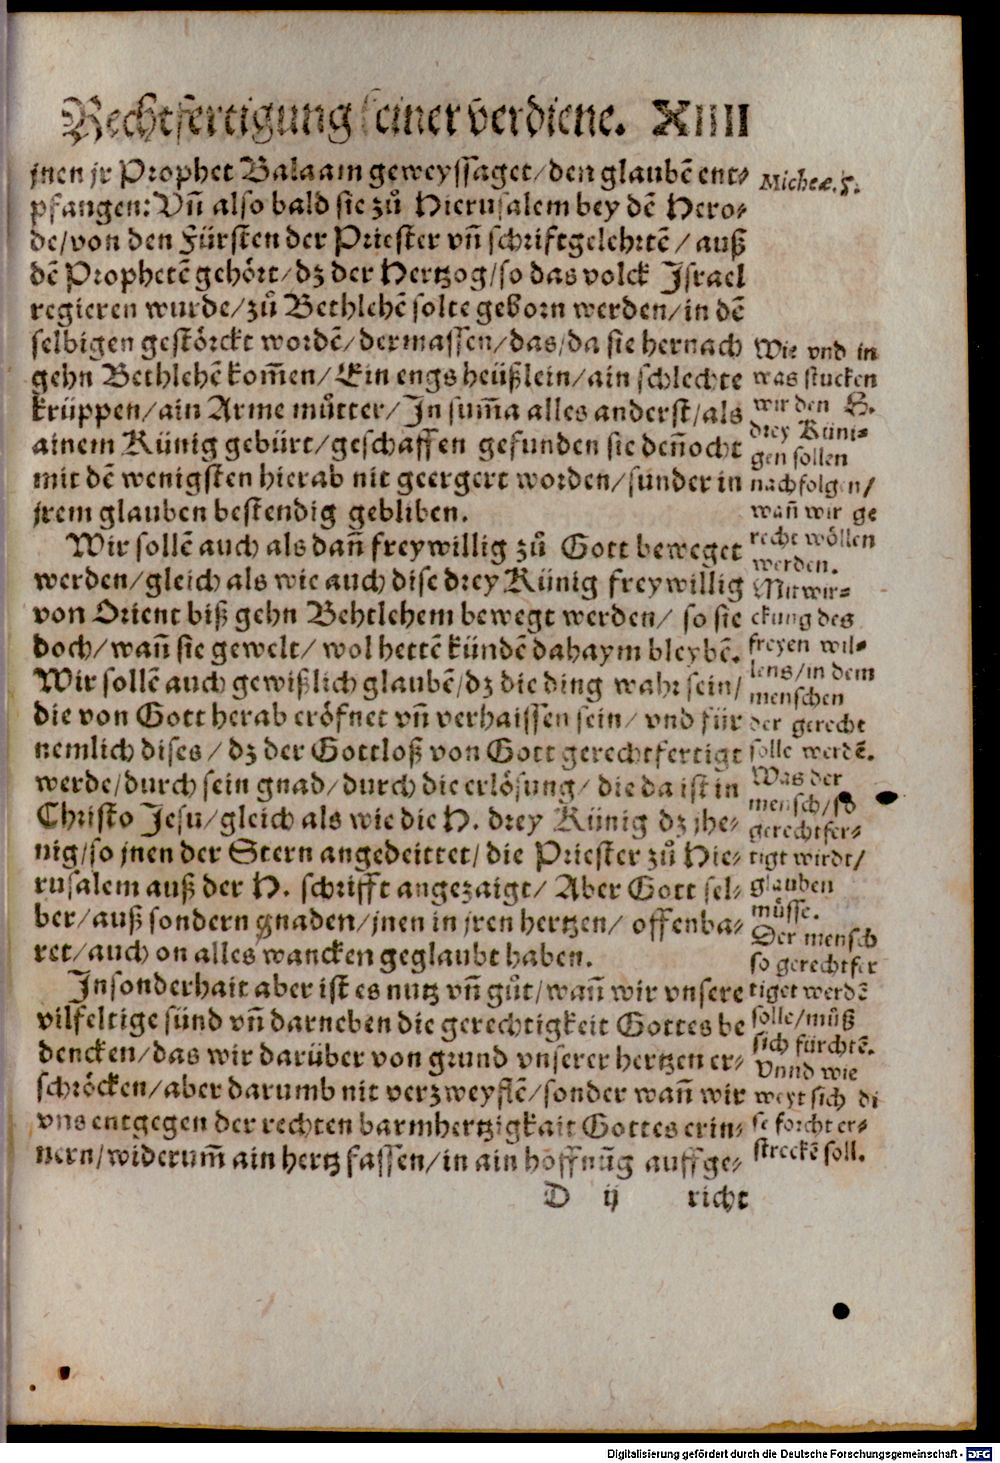 Rechtfertigung seiner verdiene. XIIII
jnen jr Prophet Balaam geweyssaget/den glaubẽ ent⸗
pfangen: Vñ also bald sie zů Hierusalem bey dẽ Hero⸗
de/von den Fürsten der Priester vñ schriftgelehrtẽ/auß
dẽ Prophetẽ gehört/dz der Hertzog/so das volck Israel
regieren wurde/zů Bethlehẽ solte geborn werden/in dẽ
selbigen gestörckt wordẽ/dermassen/das/da sie hernach
gehn Bethlehẽ kom̃en/Ein engs heüßlein/ain schlechte
krüppen/ain Arme můtter/In sum̃a alles anderst/als
ainem Künig gebürt/geschaffen gefunden sie deñocht
mit dẽ wenigsten hierab nit geergert worden/sunder in
jrem glauben bestendig gebliben.
Wir sollẽ auch als dañ freywillig zů Gott beweget
werden/gleich als wie auch dise drey Künig freywillig
von Orient biß gehn Behtlehem bewegt werden/ so sie
doch/wañ sie gewelt/wol hettẽ kündẽ dahaym bleybẽ.
Wir sollẽ auch gewißlich glaubẽ/dz die ding wahr sein/
die von Gott herab eröfnet vñ verhaissen sein/ vnd für
nemlich dises/ dz der Gottloß von Gott gerechtfertigt
werde/durch sein gnad/durch die erlösung/ die da ist in
Christo Jesu/gleich als wie die H. drey Künig dz jhe⸗
nig/so jnen der Stern angedeittet/die Priester zů Hie⸗
rusalem auß der H. schrifft angezaigt/ Aber Gott sel⸗
ber/auß sondern gnaden/jnen in jren hertzen/ offenba⸗
ret/auch on alles wancken geglaubt haben.
Insonderhait aber ist es nutz vñ gůt/wañ wir vnsere
vilfeltige sünd vñ darneben die gerechtigkeit Gottes be
dencken/das wir darüber von grund vnserer hertzen er⸗
schröcken/aber darumb nit verzweyflẽ/sonder wañ wir
vns entgegen der rechten barmhertzigkait Gottes erin⸗
nern/widerum̃ ain hertz fassen/in ain hoffnũg auffge⸗
D ij richt
Micheæ. 5.
Wie vnd in
was stucken
wir den H.
drey Küni⸗
gen sollen
nachfolgen/
wañ wir ge
recht wöllen
werden.
Mitwir⸗
ckung des
freyen wil⸗
lens/in dem
menschen
der gerecht
solle werdẽ.
Was der
mensch/so
gerechtfer⸗
tigt wirdt/
glauben
müsse.
Der mensch
so gerechtfer
tiget werdẽ
solle/můß
sich fürchtẽ.
Vnnd wie
weyt sich di
se forcht er⸗
streckẽ soll.
Digitalisierung gefördert durch die Deutsche Forschungsgemeinschaft - DFG